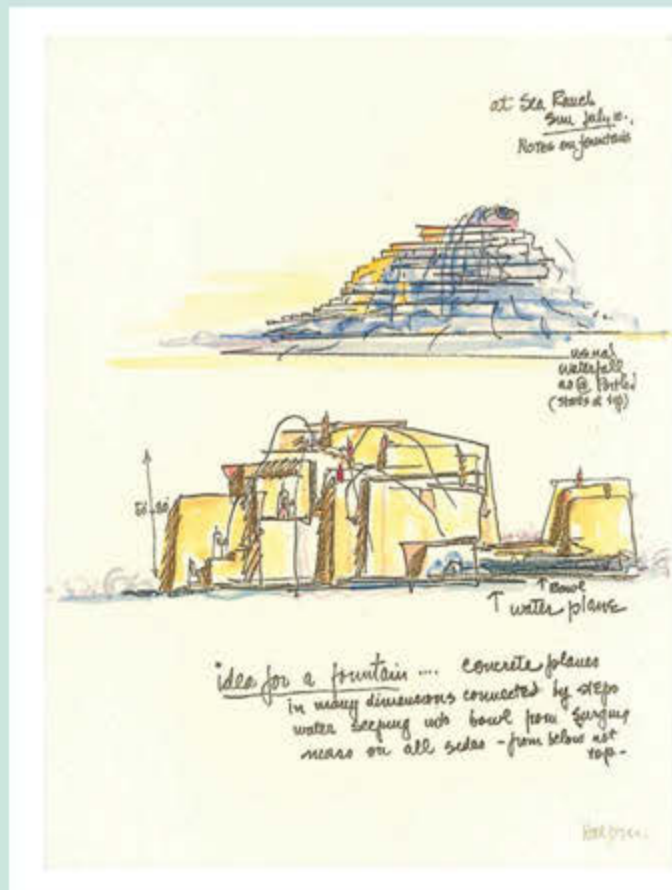 at Sea Ranch
Sun July 10.,
Notes on fountain
usual
waterfall
as @ Portlnd
(starts at top)
↑ Bowl
↑ water plane
idea for a fountain .... concrete planes
in many dimensions connected by steps
water seeping into bowl from surging
mass on all sides - from below not
top -